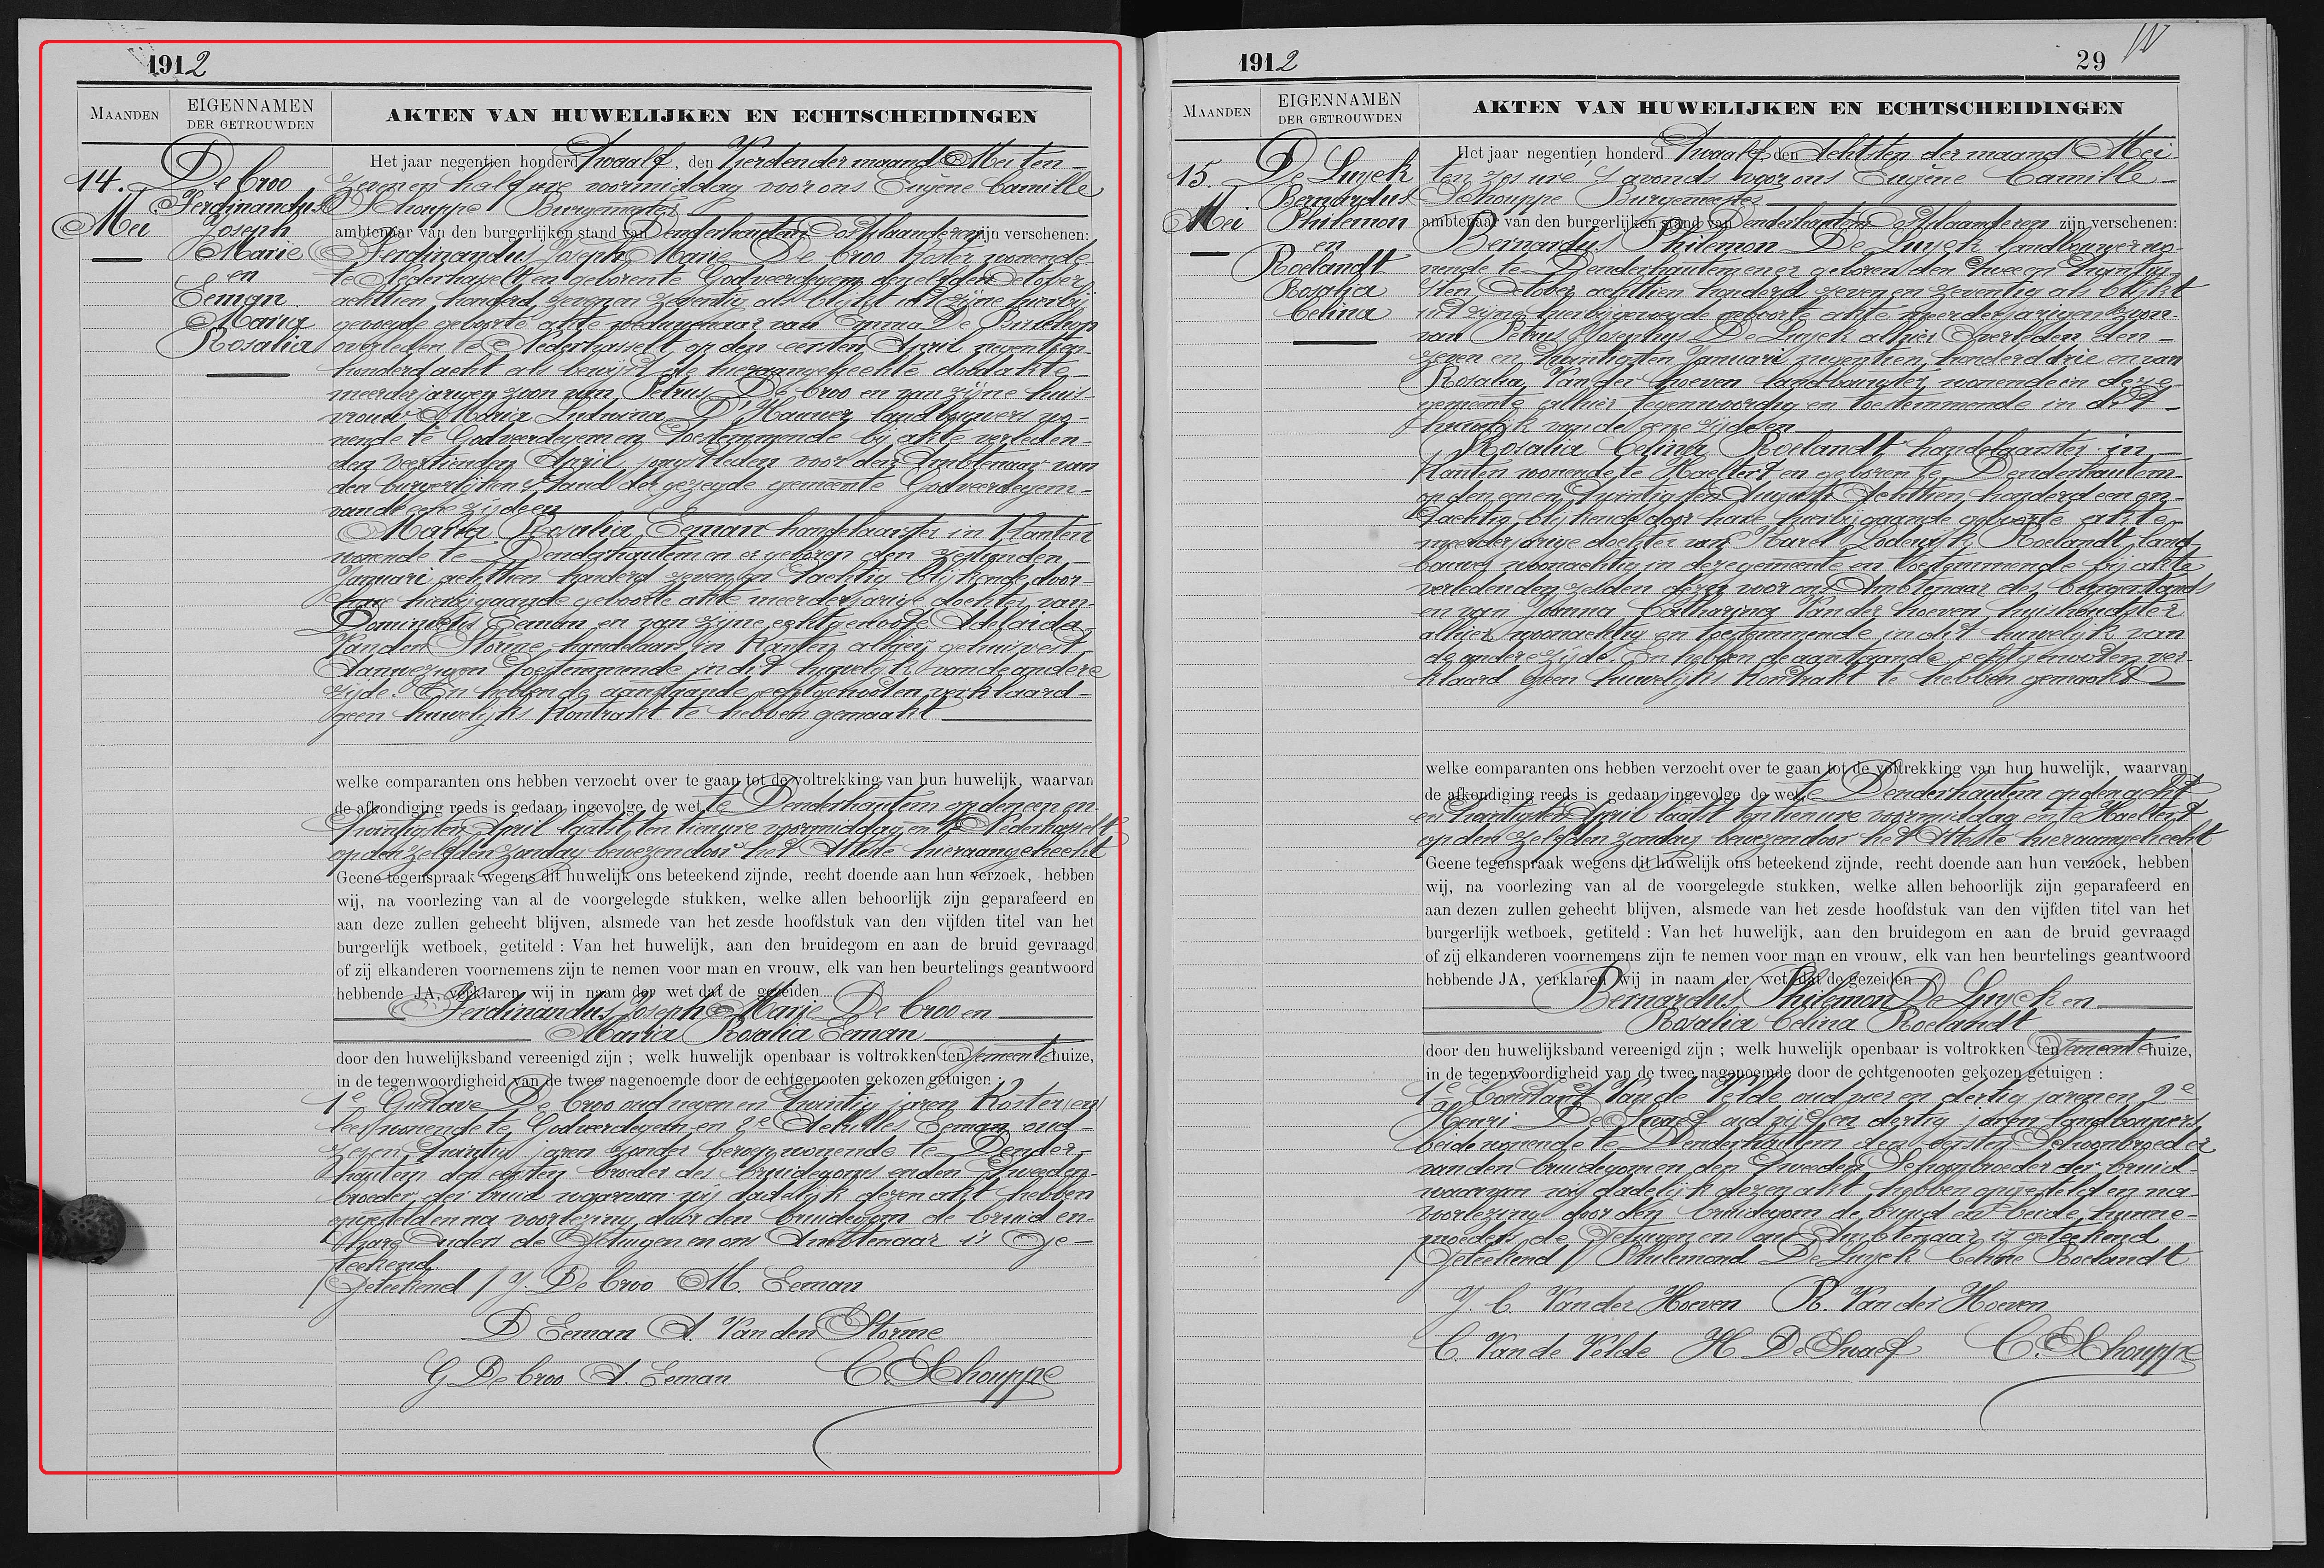 1912
MAANDEN
EIGENNAMEN
DER GETROUWDEN
AKTEN VAN HUWELIJKEN EN ECHTSCHEIDINGEN
14.
Mei
De Croo
Ferdinandus
Joseph
Marie
en
Eeman
Maria
Rosalia
Het jaar negentien honderd Twaalf, den Vierden der maand Mei ten
zeven en half ure voormiddag voor ons Eugène Camille
Schouppe Burgemeester
ambtenaar van den burgerlijken stand van Denderhautem Oostvlaanderen zijn verschenen:
Ferdinandus Joseph Marie De Croo Koster wonende
te Nederhasselt en geboren te Godveerdegem den elfden October
achttien honderd zeven en zeventig als blijkt uit zijne hierbij
gevoegde geboorte akte weduwenaar van Emma De
overleden te Nederhasselt op den eersten April negentien
honderd acht als bewijst de hieraangehechte doodakte
meerderjarigen zoon van Petrus De Croo en van zijne huis-
vrouw Maria Ludovina D'Hauwer landbouwers wo-
nende te Godveerdegem en toestemmende bij akte verleden
den veertienden April jongstleden voor den Ambtenaar van
den burgerlijken stand der gezegde gemeente Godveerdegem
van de eene zijde en
Maria Rosalia Eeman handelaarster in Kanten
wonende te Denderhautem en er geboren den zestienden
Januari achttien honderd zeven en tachtig blijkende door
hare hierbijgaande geboorte akte meerderjarige dochter van
Dominicus Eeman en van zijne echtgenoote Adelaida
Van den Storme, handelaars in Kanten alhier gehuisvest
Aanwezig en toestemmende in dit huwelijk van de andere
zijde. En hebben de aanstaande echtgenooten verklaard
geen huwelijks Kontrakt te hebben gemaakt
welke comparanten ons hebben verzocht over te gaan tot de voltrekking van hun huwelijk, waarvan
de afkondiging reeds is gedaan ingevolge de wet te Denderhautem op den een en
twintigsten April laatst ten tien ure voormiddag en te Nederhasselt
op den zelfden zondag bewezen door het Atteste hieraangehecht
Geene tegenspraak wegens dit huwelijk ons beteekend zijnde, recht doende aan hun verzoek, hebben
wij, na voorlezing van al de voorgelegde stukken, welke allen behoorlijk zijn geparafeerd en
aan deze zullen gehecht blijven, alsmede van het zesde hoofdstuk van den vijfden titel van het
burgerlijk wetboek, getiteld : Van het huwelijk, aan den bruidegom en aan de bruid gevraagd
of zij elkanderen voornemens zijn te nemen voor man en vrouw, elk van hen beurtelings geantwoord
hebbende JA, verklaren wij in naam der wet dat de gezeiden
Ferdinandus Joseph Marie De Croo en
Maria Rosalia Eeman
door den huwelijksband vereenigd zijn ; welk huwelijk openbaar is voltrokken ten Gemeentehuize,
in de tegenwoordigheid van de twee nagenoemde door de echtgenooten gekozen getuigen :
1e Gustave De Croo oud negen en twintig jaren Koster en
wonende te Godveerdegem en 2e Achilles Eeman oud
zeven twintig jaren zonder beroep wonende te Dender-
hautem den eersten broeder des bruidegoms en den tweeden
broeder der bruid waarvan wij dadelijk dezen akt hebben
opgesteld en na voorlezing door den bruidegom de bruid en
hare ouders de Getuigen en ons Ambtenaar is ge-
teekend.
/Geteekend/ J. De Croo M. Eeman
D Eeman A. Van den Storme
G De Croo A. Eeman C. Schouppe
1912
29
MAANDEN
EIGENNAMEN
DER GETROUWDEN
AKTEN VAN HUWELIJKEN EN ECHTSCHEIDINGEN
15.
Mei
De Luyck
Bernardus
Philemon
en
Roelandt
Rosalia
Celina
Het jaar negentien honderd Twaalf den Achtsten der maand Mei
ten zes ure 's avonds voor ons Eugène Camille
Schouppe Burgemeester
ambtenaar van den burgerlijken stand van Denderhautem Oostvlaanderen zijn verschenen:
Bernardus Philemon De Luyck landbouwer wo-
nende te Denderhautem en er geboren den twee en twintig-
sten October achttien honderd zeven en zeventig als blijkt
uit zijne hierbijgevoegde geboorte akte meerderjarigen zoon
van Petrus Josephus De Luyck alhier overleden den
zeven en twintigsten Januari negentien honderd drie en van
Rosalia Van der hoeven landbouwster wonende in deze
gemeente alhier tegenwoordig en toestemmende in dit
huwelijk van de eene zijde en
Rosalia Celina Roelandt handelaarster in
Kanten wonende te Haeltert en geboren te Denderhautem
op den een en twintigsten Augusti Achttien honderd een en
tachtig blijkende door hare hierbijgaande geboorte akte
meerderjarige dochter van Karel Lodewijk Roelandt land-
bouwer woonachtig in deze gemeente en toestemmende bij akte
verleden den zelfden dezer voor ons Ambtenaar des burgerstands
en van Joanna Catharina Van der hoeven huishoudster
alhier woonachtig en toestemmende in dit huwelijk van
de andere zijde. En hebben de aanstaande echtgenooten ver-
klaard geen huwelijks Kontrakt te hebben gemaakt
welke comparanten ons hebben verzocht over te gaan tot de voltrekking van hun huwelijk, waarvan
de afkondiging reeds is gedaan ingevolge de wet te Denderhautem op den acht
en twintigsten April laatst ten tien ure voormiddag en te Haeltert
op den zelfden zondag bewezen door het Atteste hieraangehecht
Geene tegenspraak wegens dit huwelijk ons beteekend zijnde, recht doende aan hun verzoek, hebben
wij, na voorlezing van al de voorgelegde stukken, welke allen behoorlijk zijn geparafeerd en
aan dezen zullen gehecht blijven, alsmede van het zesde hoofdstuk van den vijfden titel van het
burgerlijk wetboek, getiteld : Van het huwelijk, aan den bruidegom en aan de bruid gevraagd
of zij elkanderen voornemens zijn te nemen voor man en vrouw, elk van hen beurtelings geantwoord
hebbende JA, verklaren wij in naam der wet dat de gezeiden
Bernardus Philemon De Luyck en
Rosalia Celina Roelandt
door den huwelijksband vereenigd zijn ; welk huwelijk openbaar is voltrokken ten Gemeentehuize,
in de tegenwoordigheid van de twee nagenoemde door de echtgenooten gekozen getuigen :
1e Constant Van de Velde oud vier en dertig jaren en 2e
Henri De Swaef oud vijf en dertig jaren landbouwers
beide wonende te Denderhautem den eersten Schoonbroeder
van den bruidegom en den tweeden Schoonbroeder der bruid
waarvan wij dadelijk dezen akt hebben opgesteld en na
voorlezing door den bruidegom de bruid en beide hunne
moeders de Getuigen en ons Ambtenaar is geteekend
/Geteekend/ Philemond De Luyck Celine Roelandt
J. C. Van der Hoeven R. Van der Hoeven
C. Van de Velde H. De Swaef C. Schouppe